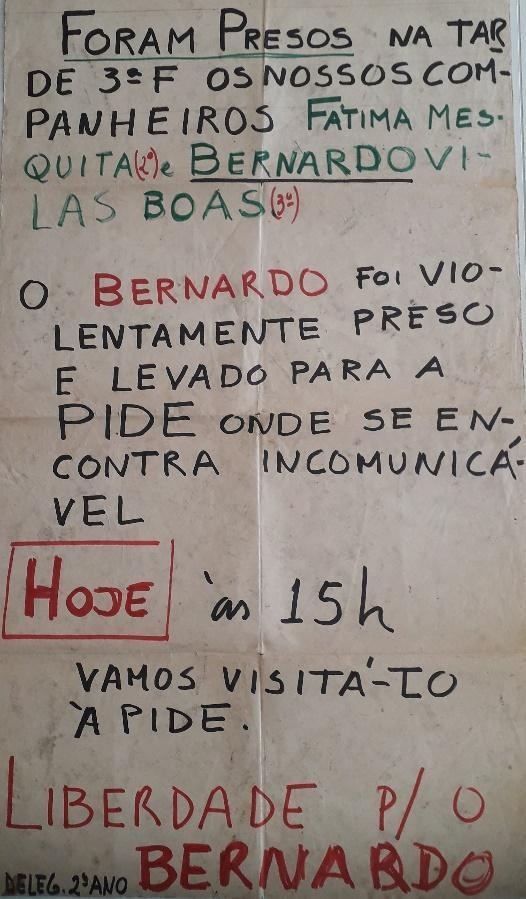 FORAM PRESOS NA TAR
DE 3ª F OS NOSSOS COM-
PANHEIROS FÁTIMA MES-
QUITA(2º)e BERNARDO VI-
LAS BOAS(3º)
O BERNARDO FOI VIO-
LENTAMENTE PRESO
E LEVADO PARA A
PIDE ONDE SE EN-
CONTRA INCOMUNICÁ-
VEL
HOJE às 15h
VAMOS VISITÁ-LO
À PIDE.
LIBERDADE P/ O
DELEG. 2º ANO BERNARDO